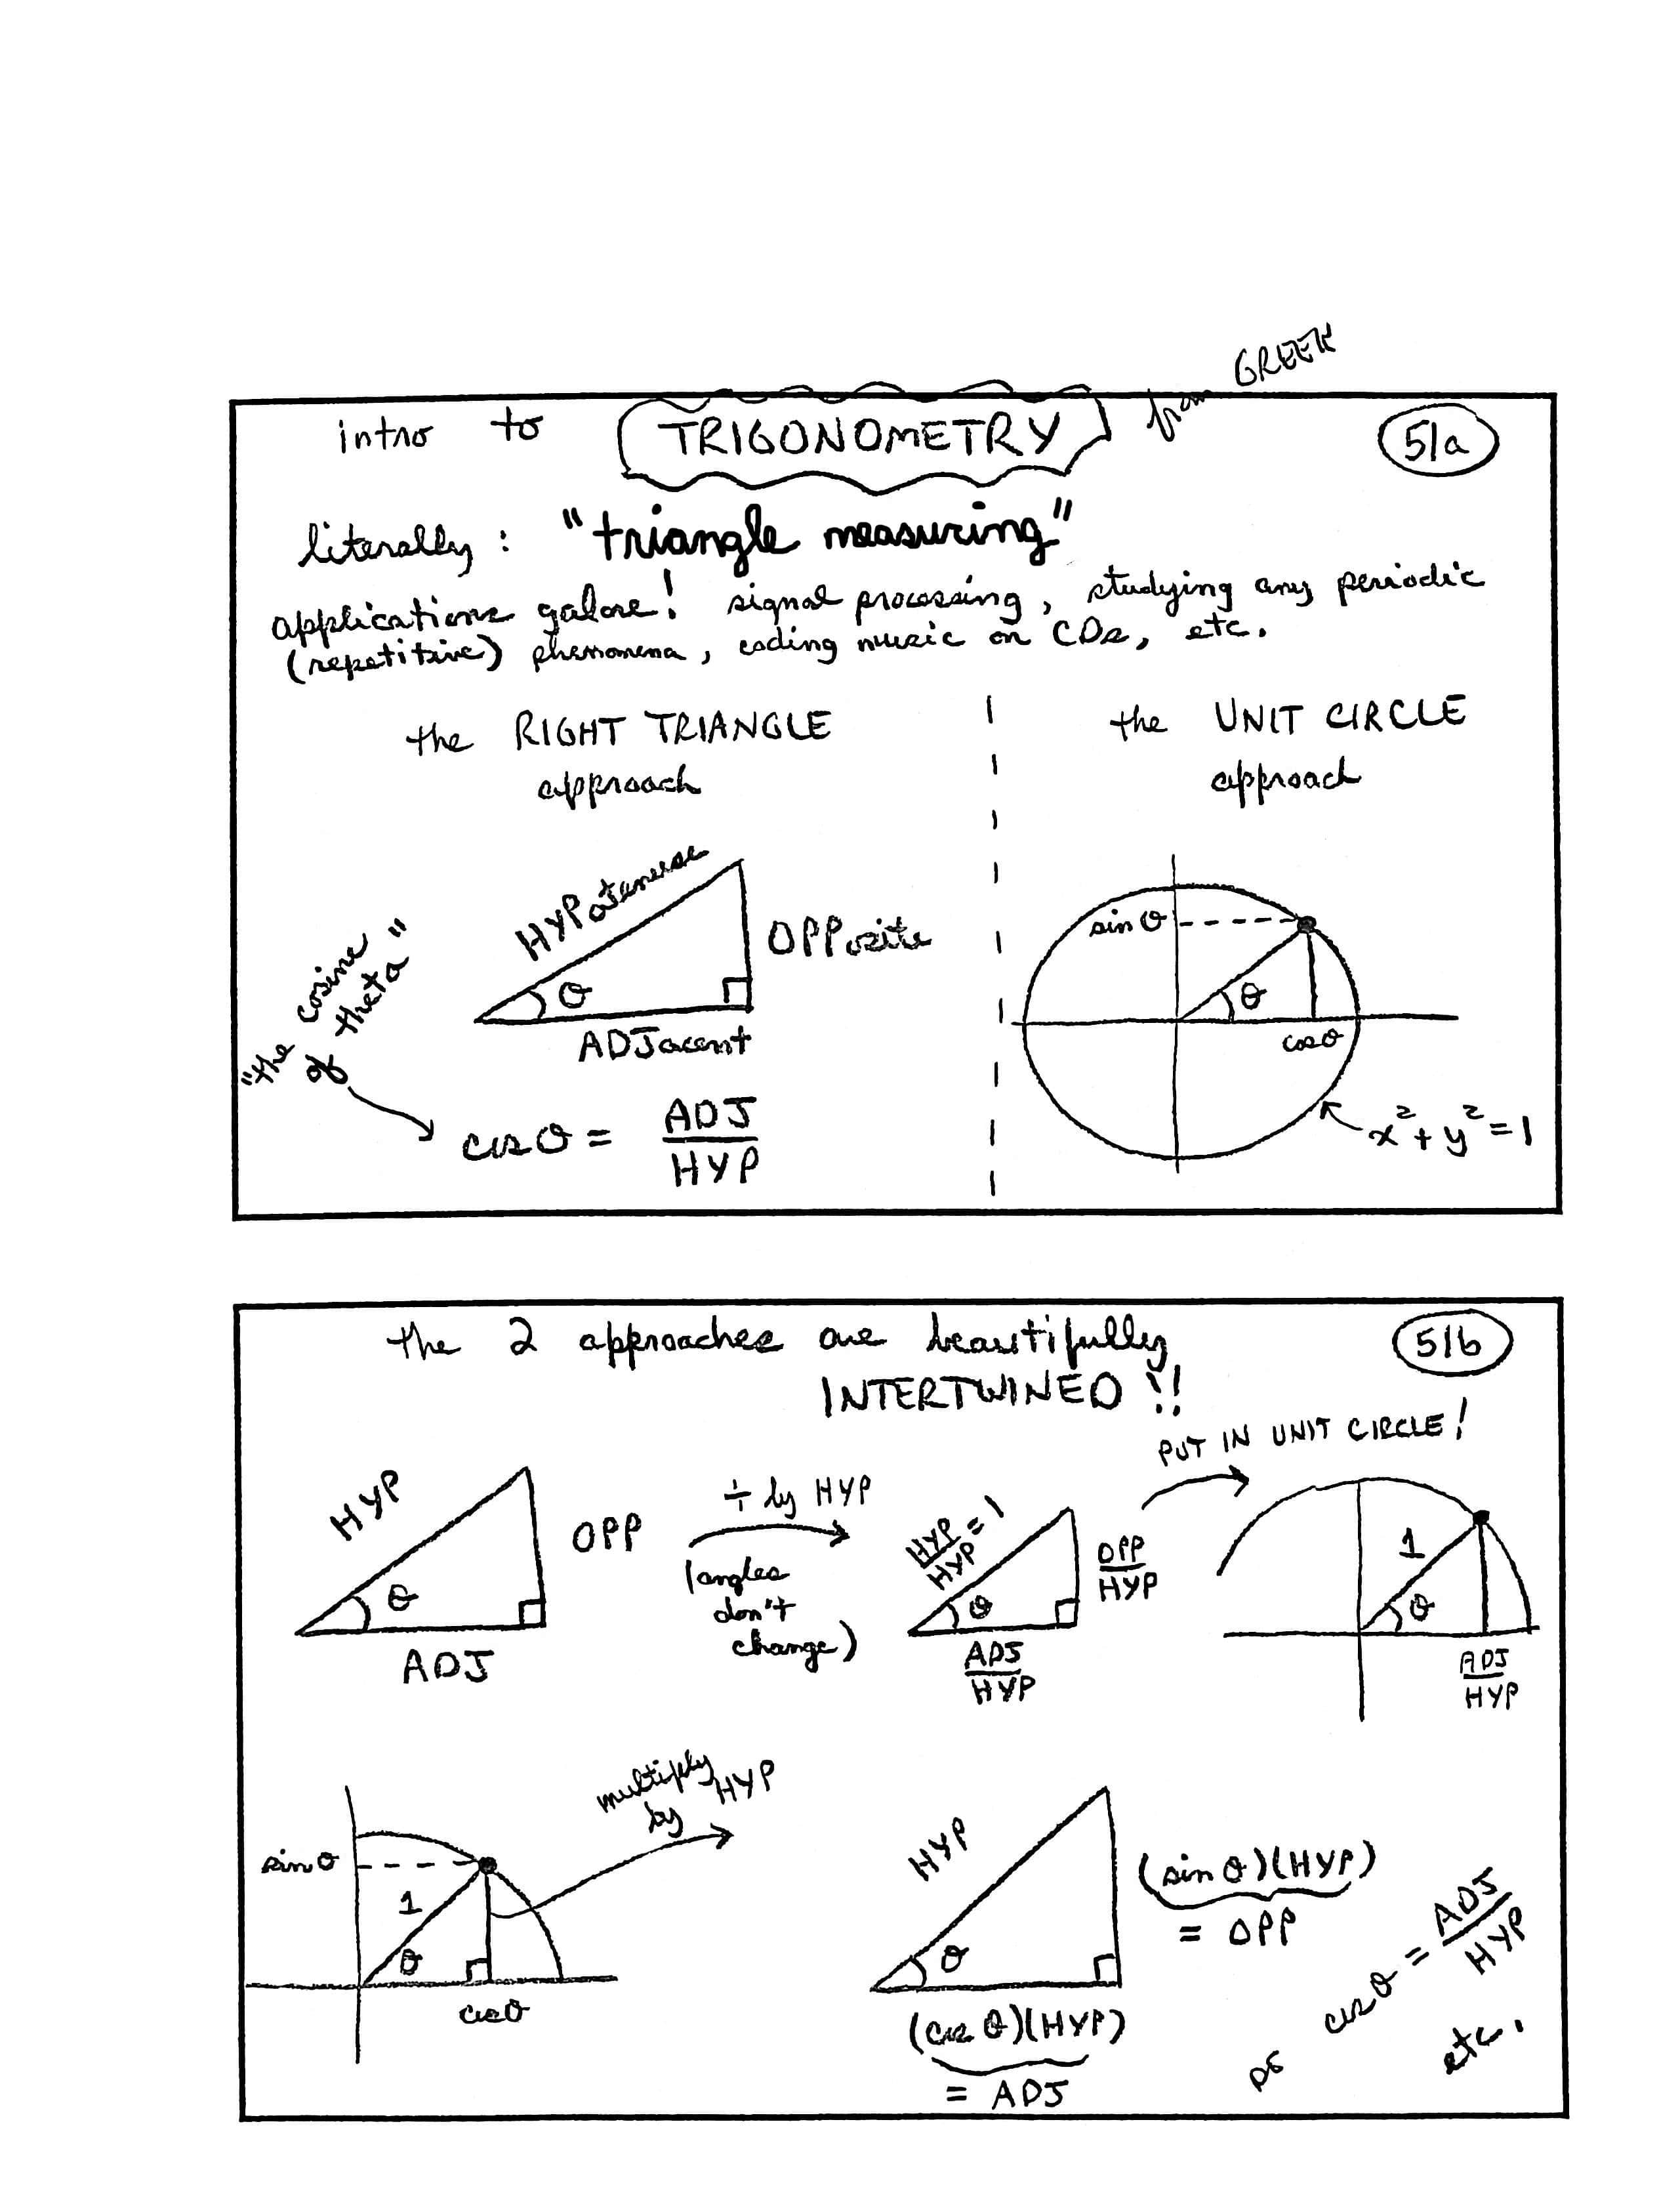 intro to TRIGONOMETRY from GREEK
51a
literally: "triangle measuring"
applications galore! signal processing, studying any periodic
(repetitive) phenomena, coding music on CDs, etc.
the RIGHT TRIANGLE
approach
HYPotenuse
OPPosite
θ
ADJacent
"the cosine
of theta"
cos θ = ADJ/HYP
the UNIT CIRCLE
approach
sin θ
θ
cos θ
x² + y² = 1
the 2 approaches are beautifully
INTERTWINED!!
51b
HYP
OPP
θ
ADJ
÷ by HYP
(angles
don't
change)
HYP/HYP = 1
OPP/HYP
θ
ADJ/HYP
PUT IN UNIT CIRCLE!
1
θ
ADJ/HYP
sin θ
1
θ
cos θ
multiply
by HYP
HYP
θ
(sin θ)(HYP)
= OPP
(cos θ)(HYP)
= ADJ
so cos θ = ADJ/HYP
etc.